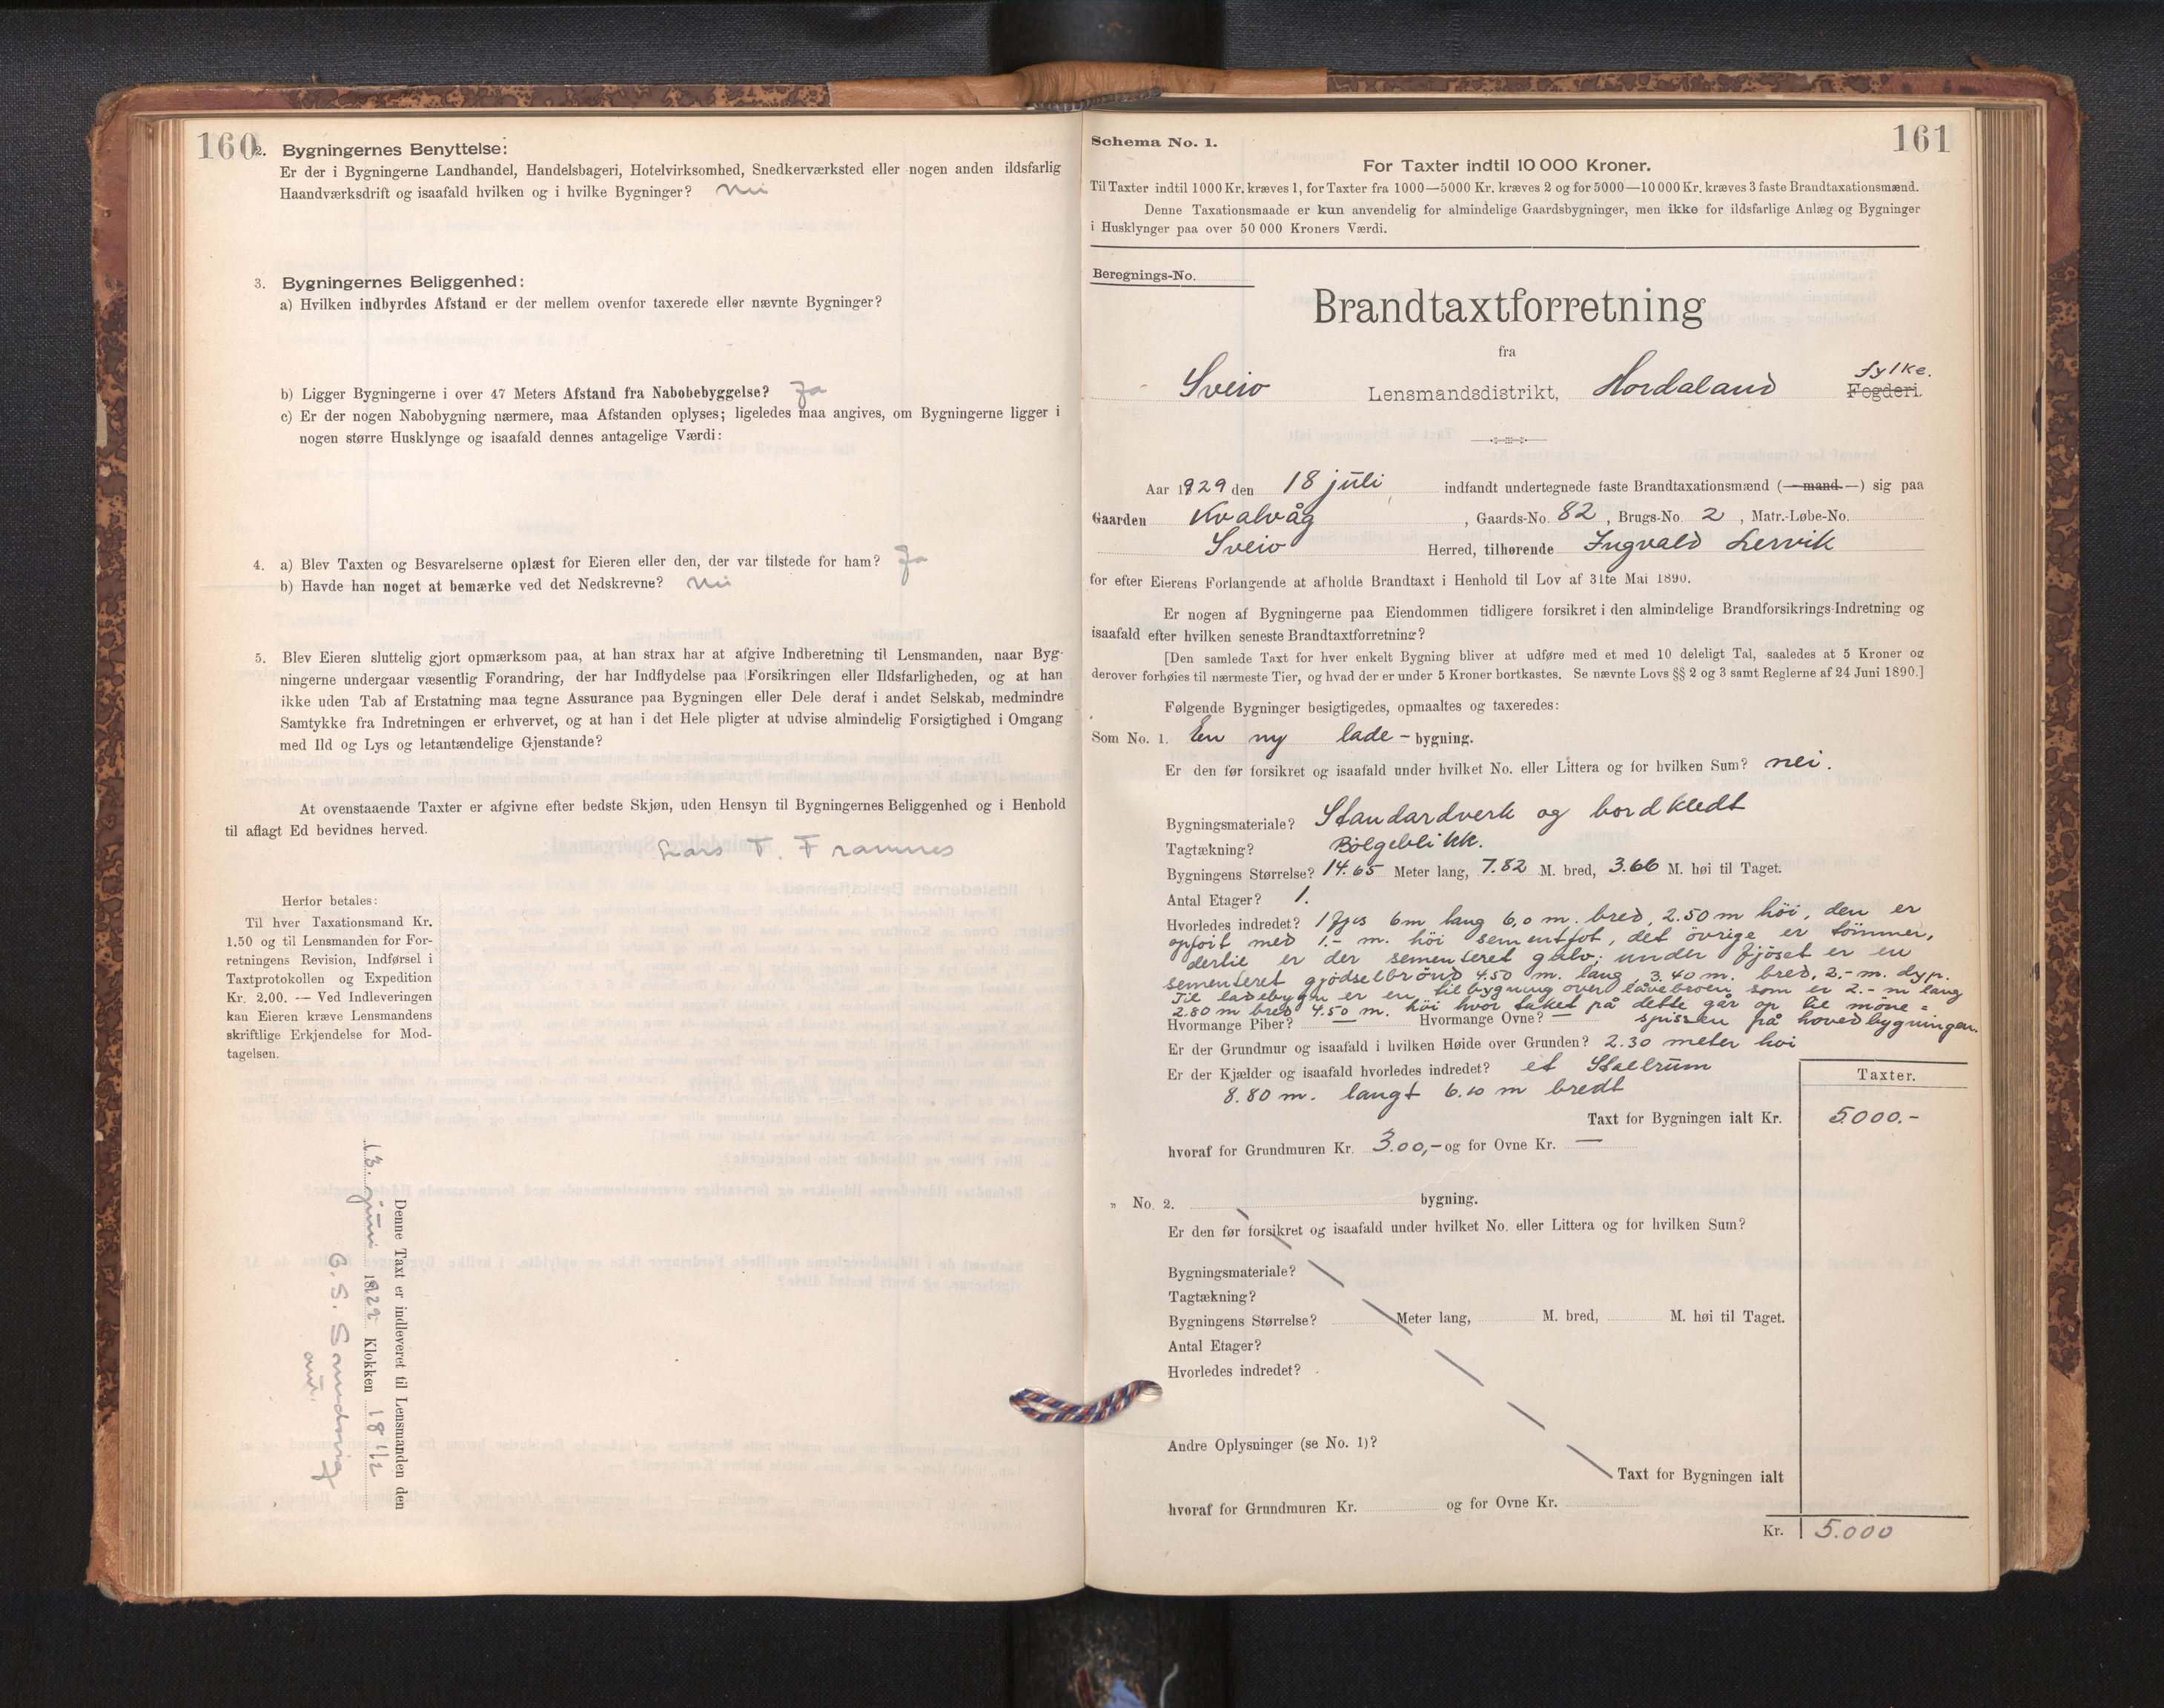 160
2. Bygningernes Benyttelse:
Er der i Bygningerne Landhandel, Handelsbageri, Hotelvirksomhed, Snedkerværksted eller nogen anden ildsfarlig
Haandværksdrift og isaafald hvilken og i hvilke Bygninger? nei
3. Bygningernes Beliggenhed:
a) Hvilken indbyrdes Afstand er der mellem ovenfor taxerede eller nævnte Bygninger?
b) Ligger Bygningerne i over 47 Meters Afstand fra Nabobebyggelse? Ja
c) Er der nogen Nabobygning nærmere, maa Afstanden oplyses; ligeledes maa angives, om Bygningerne ligger i
nogen større Husklynge og isaafald dennes antagelige Værdi:
4. a) Blev Taxten og Besvarelserne oplæst for Eieren eller den, der var tilstede for ham? Ja
b) Havde han noget at bemærke ved det Nedskrevne? nei
5. Blev Eieren sluttelig gjort opmærksom paa, at han strax har at afgive Indberetning til Lensmanden, naar Byg-
ningerne undergaar væsentlig Forandring, der har Indflydelse paa Forsikringen eller Ildsfarligheden, og at han
ikke uden Tab af Erstatning maa tegne Assurance paa Bygningen eller Dele deraf i andet Selskab, medmindre
Samtykke fra Indretningen er erhvervet, og at han i det Hele pligter at udvise almindelig Forsigtighed i Omgang
med Ild og Lys og letantændelige Gjenstande?
At ovenstaaende Taxter er afgivne efter bedste Skjøn, uden Hensyn til Bygningernes Beliggenhed og i Henhold
til aflagt Ed bevidnes herved.
Lars T. Framnes
Herfor betales:
Til hver Taxationsmand Kr.
1.50 og til Lensmanden for For-
retningens Revision, Indførsel i
Taxtprotokollen og Expedition
Kr. 2.00. — Ved Indleveringen
kan Eieren kræve Lensmandens
skriftlige Erkjendelse for Mod-
tagelsen.
Denne Taxt er indleveret til Lensmanden den
13. juni 1929 Klokken 18 1/2
161
Schema No. 1.
For Taxter indtil 10 000 Kroner.
Til Taxter indtil 1000 Kr. kræves 1, for Taxter fra 1000—5000 Kr. kræves 2 og for 5000—10 000 Kr. kræves 3 faste Brandtaxationsmænd.
Denne Taxationsmaade er kun anvendelig for almindelige Gaardsbygninger, men ikke for ildsfarlige Anlæg og Bygninger
i Husklynger paa over 50 000 Kroners Værdi.
Beregnings-No.
Brandtaxtforretning
fra
Sveio Lensmandsdistrikt, Hordaland Fogderi fylke.
Aar 1929 den 18 juli indfandt undertegnede faste Brandtaxationsmænd (—mand—) sig paa
Gaarden Kvalvåg, Gaards-No. 82, Brugs-No. 2, Matr.-Løbe-No.
Sveio Herred, tilhørende Ingvald Lervik
for efter Eierens Forlangende at afholde Brandtaxt i Henhold til Lov af 31te Mai 1890.
Er nogen af Bygningerne paa Eiendommen tidligere forsikret i den almindelige Brandforsikrings-Indretning og
isaafald efter hvilken seneste Brandtaxtforretning?
[Den samlede Taxt for hver enkelt Bygning bliver at udføre med et med 10 deleligt Tal, saaledes at 5 Kroner og
derover forhøies til nærmeste Tier, og hvad der er under 5 Kroner bortkastes. Se nævnte Lovs §§ 2 og 3 samt Reglerne af 24 Juni 1890.]
Følgende Bygninger besigtigedes, opmaaltes og taxeredes:
Som No. 1. En ny lade - bygning.
Er den før forsikret og isaafald under hvilket No. eller Littera og for hvilken Sum? nei.
Bygningsmateriale? Standardverk og bordkledt
Tagtækning? Bölgeblikk.
Bygningens Størrelse? 14.65 Meter lang, 7.82 M. bred, 3.66 M. høi til Taget.
Antal Etager? 1.
Hvorledes indredet? 1 fjøs 6 m lang 6,0 m. bred, 2.50 m höi, den er
opföit med 1.- m. höi sementfot, det övrige er tömmer,
dertil er der sementeret gulv; under fjöset er en
sementeret gjödselbrönd 4.50 m. lang, 3.40 m. bred, 2,- m. dyp.
Til ladebygn er en tilbygning over låvebroen som er 2.- m lang
2.80 m bred 4.50 m. höi hvor taket på dette går op til möne=
spissen på hovedbygningen.
Hvormange Piber? — Hvormange Ovne? —
Er der Grundmur og isaafald i hvilken Høide over Grunden? 2.30 meter höi
Er der Kjælder og isaafald hvorledes indredet? et Stallrum
8.80 m. langt 6.10 m bredt
Taxter.
Taxt for Bygningen ialt Kr. 5000.-
hvoraf for Grundmuren Kr. 300,- og for Ovne Kr. —
„ No. 2. bygning.
Er den før forsikret og isaafald under hvilket No. eller Littera og for hvilken Sum?
Bygningsmateriale?
Tagtækning?
Bygningens Størrelse? Meter lang, M. bred, M. høi til Taget.
Antal Etager?
Hvorledes indredet?
Andre Oplysninger (se No. 1)?
Taxt for Bygningen ialt
hvoraf for Grundmuren Kr. og for Ovne Kr.
Kr. 5.000